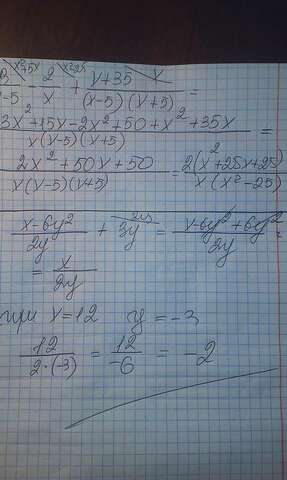 3/x-5 x²+5x - 2/x x²-25 + x+35/(x-5)(x+5) x =
3x²+15x-2x²+50+x²+35x/x(x-5)(x+5) =
2x²+50x+50/x(x-5)(x+5) = 2(x²+25x+25)/x(x²-25)
x-6y²/2y + 3y 2y = x-6y²+6y²/2y =
= x/2y
при x=12 y=-3
12/2·(-3) = 12/-6 = -2